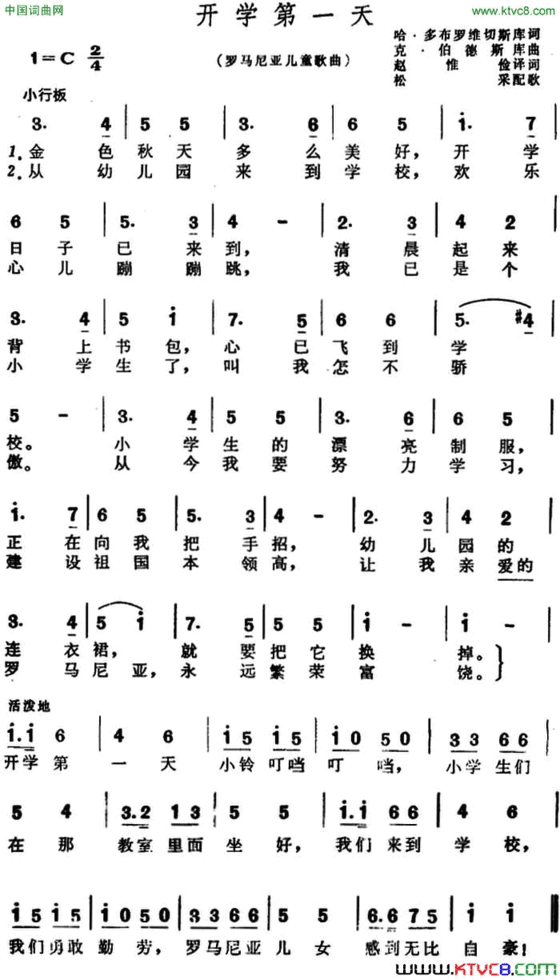 中国词曲网
www.ktvc8.com
开学第一天
1=C 2/4
（罗马尼亚儿童歌曲）
哈·多布罗维切斯库词
克·伯德斯库曲
赵惟俭译词
松采配歌
小行板
3. 4 | 5 5 | 3. 6 | 6 5 | i. 7 |
1.金色秋天多么美好，开学
2.从幼儿园来到学校，欢乐
6 5 | 5. 3 | 4 - | 2. 3 | 4 2 |
日子已来到，清晨起来
心儿蹦蹦跳，我已是个
3. 4 | 5 i | 7. 5 | 6 6 | 5. #4 |
背上书包，心已飞到学
小学生了，叫我怎不骄
5 - | 3. 4 | 5 5 | 3. 6 | 6 5 |
校。小学生的漂亮制服，
傲。从今我要努力学习，
i. 7 | 6 5 | 5. 3 | 4 - | 2. 3 | 4 2 |
正在向我把手招，幼儿园的
建设祖国本领高，让我亲爱的
3. 4 | 5 i | 7. 5 | 5 5 | i - | i - |
连衣裙，就要把它换掉。
罗马尼亚，永远繁荣富饶。
活泼地
i.i 6 | 4 6 | i5 i5 | i0 50 | 33 66 |
开学第一天小铃叮当叮当，小学生们
5 4 | 3.2 13 | 5 5 | i.i 66 | 4 6 |
在那教室里面坐好，我们来到学校，
i5 i5 | i0 50 | 33 66 | 5 5 | 6.6 75 | i i ‖
我们勇敢勤劳，罗马尼亚儿女感到无比自豪！
www.KTVC8.com